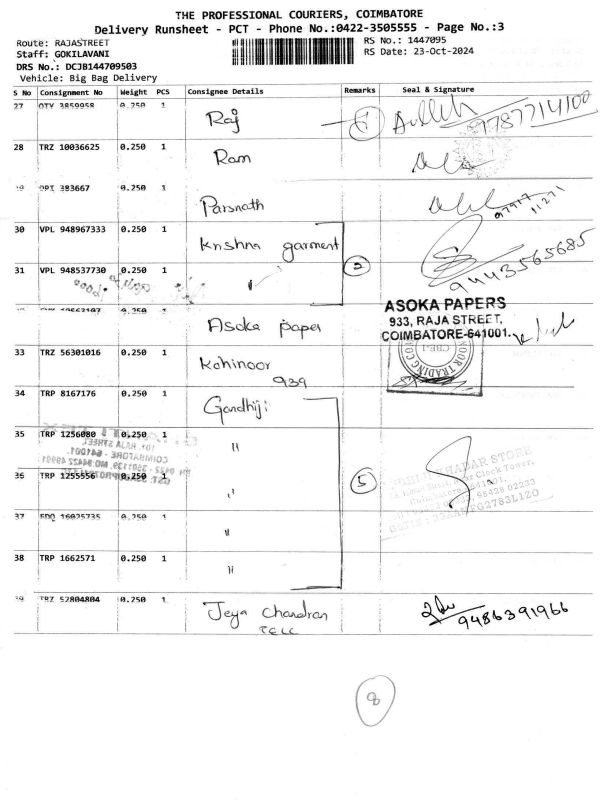 THE PROFESSIONAL COURIERS, COIMBATORE
Delivery Runsheet - PCT - Phone No.:0422-3505555 - Page No.:3
Route: RAJASTREET
RS No.: 1447095
Staff: GOKILAVANI
RS Date: 23-Oct-2024
DRS No.: DCJB144709503
Vehicle: Big Bag Delivery
S No Consignment No Weight PCS Consignee Details Remarks Seal & Signature
27 OTY 3859958 0.250 1 Raj 1 7787714100
28 TRZ 10036625 0.250 1 Ram
OPT 383667 0.250 1 Parsnath
30 VPL 948967333 0.250 1 Krishna garment
31 VPL 948537730 0.250 1 2 9443565685
0.250 1 Asoka paper
ASOKA PAPERS
933, RAJA STREET,
COIMBATORE-641001.
33 TRZ 56301016 0.250 1 Kohinoor
939
34 TRP 8167176 0.250 1 Gandhiji
35 TRP 1256080 0.250 1 "
36 TRP 1255556 0.250 1 " 5
37 16025735 0.250 1 "
38 TRP 1662571 0.250 1 "
39 TRZ 52804804 0.250 1 Jeya Chandran
9486391966
8